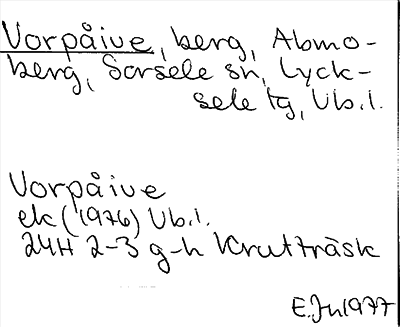 Vorpåive, berg, Abmo-
berg, Sorsele sn, Lyck-
sele tg, Vb.l.
Vorpåive
ek (1976) Vb.l.
24H 2-3 g-h Krutträsk
E.Jn 1977